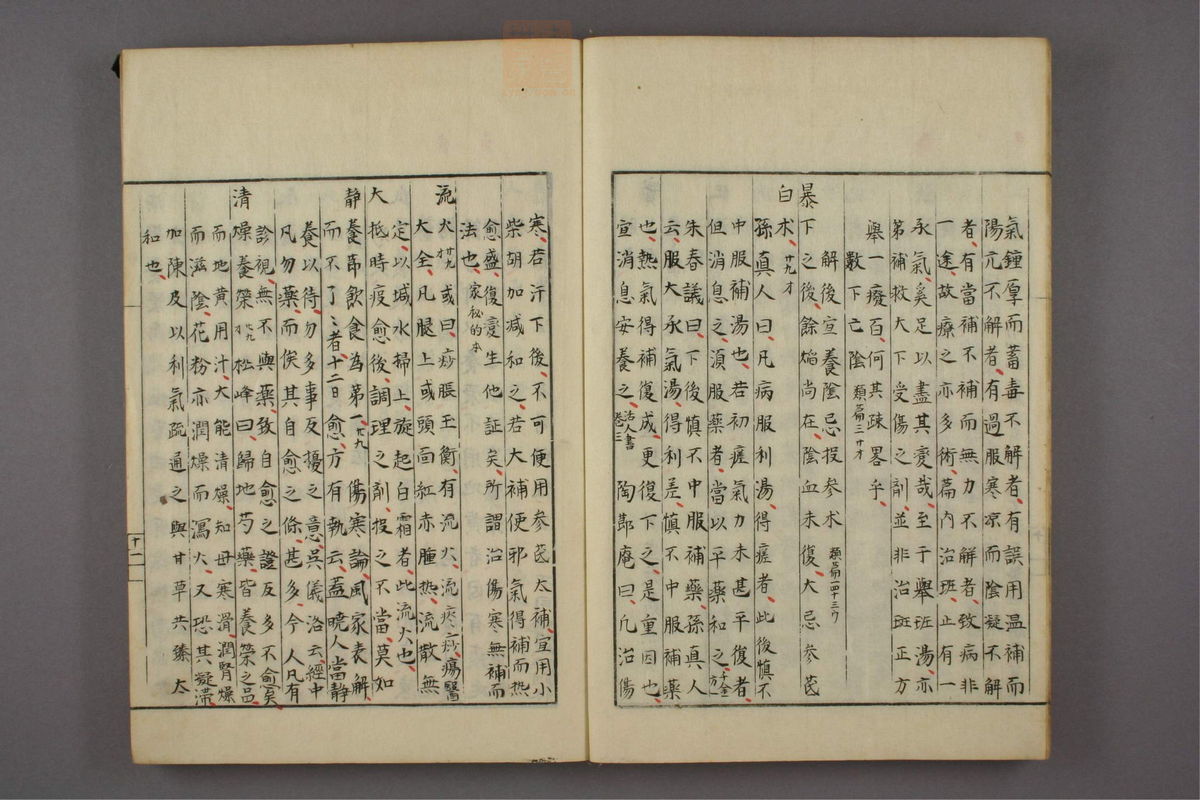 氣鍾厚而蓄毒不解者有誤用温補而
陽亢不解者有過服寒凉而陰凝不解
者有當補不補而無力不解者致病非
一途故療之亦多術篇内治班止有一
承氣奚足以盡其變哉至于舉班湯亦
第補救大下受傷之劑並非治斑正方
舉一癈百何其踈畧乎
數下亡陰 類篇三十才
暴
解後宣養陰忌投参术 類篇一四十三ウ
下之後餘焰尚在陰血未復大忌参芪
白术 廿九才
孫真人曰凡病服利湯得瘥者此後慎不
中服補湯也若初瘥氣力未甚平復者
但消息之須服藥者當以平藥和之千金方一
朱春議曰下後慎不中服補藥孫真人
云服大承氣湯得利差慎不中服補藥
也熱氣得補復成更復下之是重因也
宣消息安養之活人書卷三陶節庵曰凢治傷
寒若汗下後不可便用参芪大補宜用小
柴胡加减和之若大補便邪氣得補而热
愈盛復變生他証矣所謂治傷寒無補而
法也 家秘的本
流火 廿九 或曰痧脹玉衡有流火流痰痧瘍醫
大全凡腿上或頭面紅赤腫热流散無
定以堿水掃上旋起白霜者此流火也
大抵時疫愈後調理之劑投之不當莫如
静養莭飲食為第一 廿九 傷寒論風家表解
而不了〻者十二日愈方有執云盖曉人當静
養以待勿多事反擾之意吳儀洛云經中
凡勿藥而俟其自愈之條甚多今人凡有
診視無不與藥致自愈之證反多不愈矣
清燥養榮 廿九 松峰曰歸地芍藥皆養榮之品
而地黄用汁大能清燥知母寒滑潤腎燥
而滋陰花粉亦潤燥而瀉火又恐其凝滞
加陳及以利氣疏通之與甘草共臻太
和也
十一